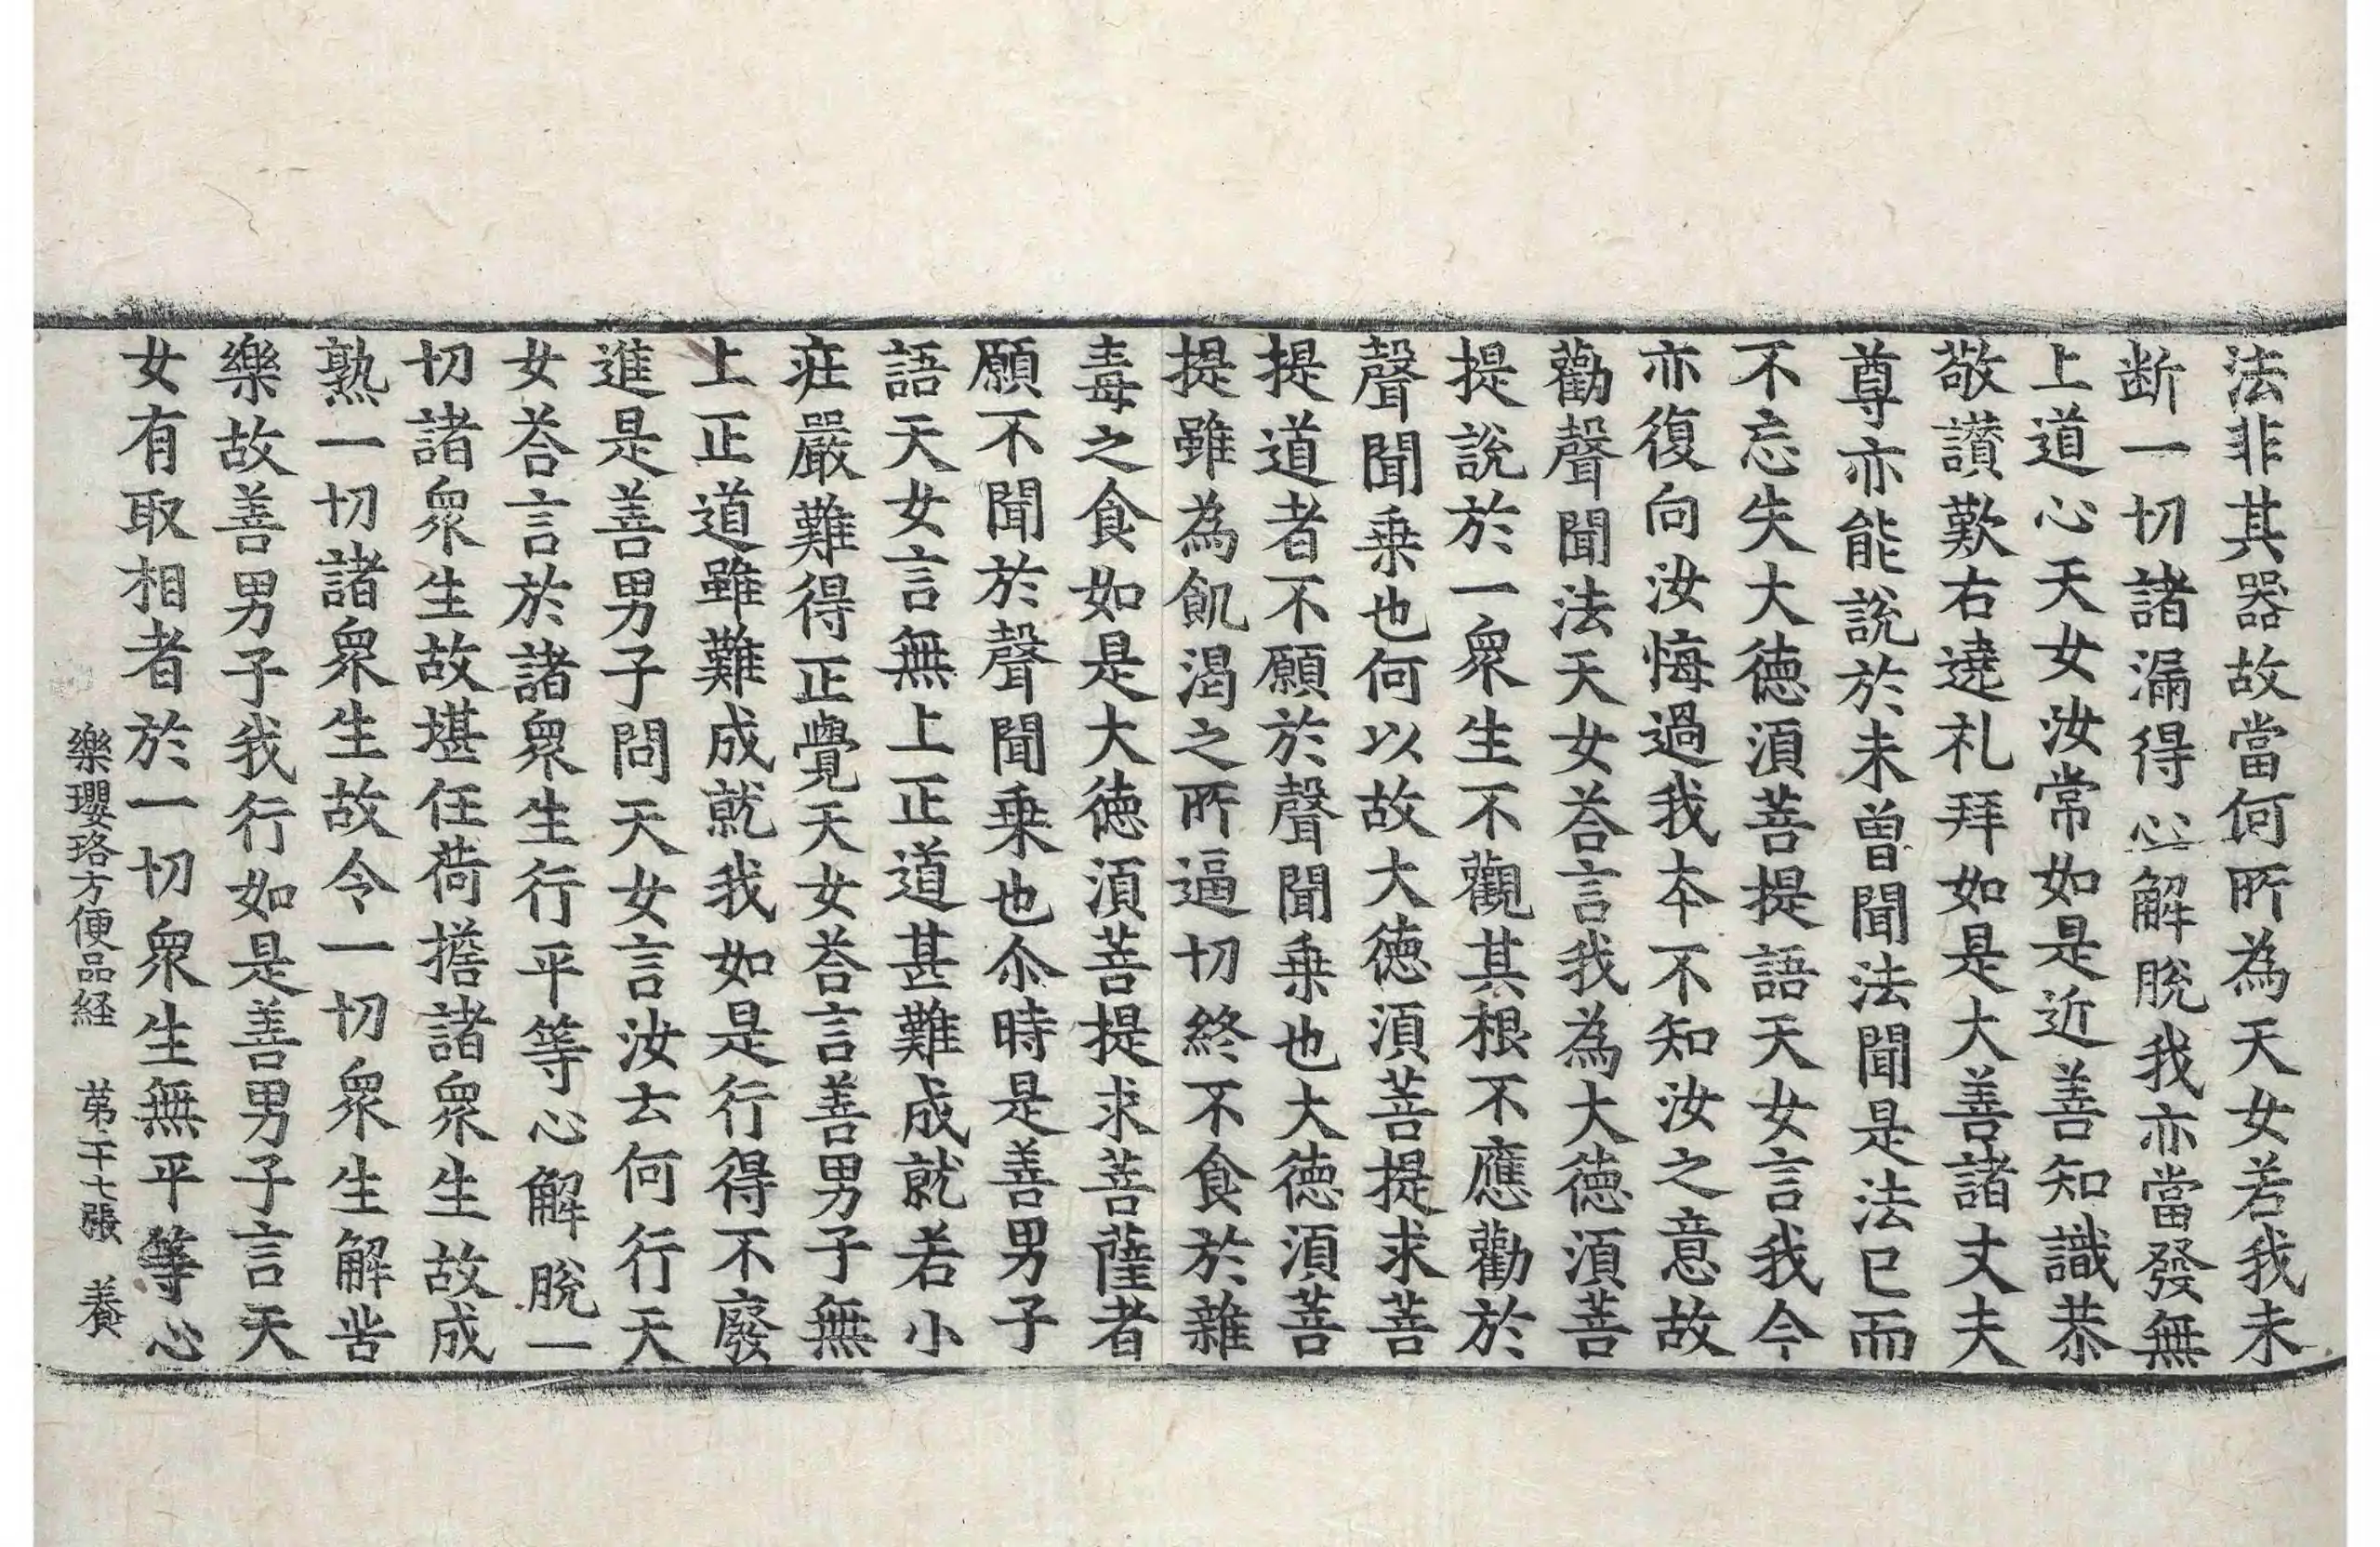 法非其器故當何所為天女若我未
断一切諸漏得心解脫我亦當發無
上道心天女汝常如是近善知識恭
敬讃歎右遶礼拜如是大善諸丈夫
尊亦能說於未曽聞法聞是法已而
不忘失大徳湏菩提語天女言我今
亦復向汝悔過我夲不知汝之意故
勸聲聞法天女荅言我為大徳湏菩
提說於一衆生不觀其根不應勸於
聲聞乗也何以故大徳湏菩提求菩
提道者不願於聲聞乗也大徳湏菩
提雖為飢渴之所逼切終不食於雜
毒之食如是大徳湏菩提求菩薩者
願不聞於聲聞乗也尒時是善男子
語天女言無上正道甚難成就若小
疰嚴難得正覺天女荅言善男子無
上正道雖難成就我如是行得不廢
進是善男子問天女言汝云何行天
女荅言於諸衆生行平等心解脫一
切諸衆生故堪任荷擔諸衆生故成
熟一切諸衆生故令一切衆生解苦
樂故善男子我行如是善男子言天
女有取相者於一切衆生無平等心
樂瓔珞方便品経　苐二十七張　養